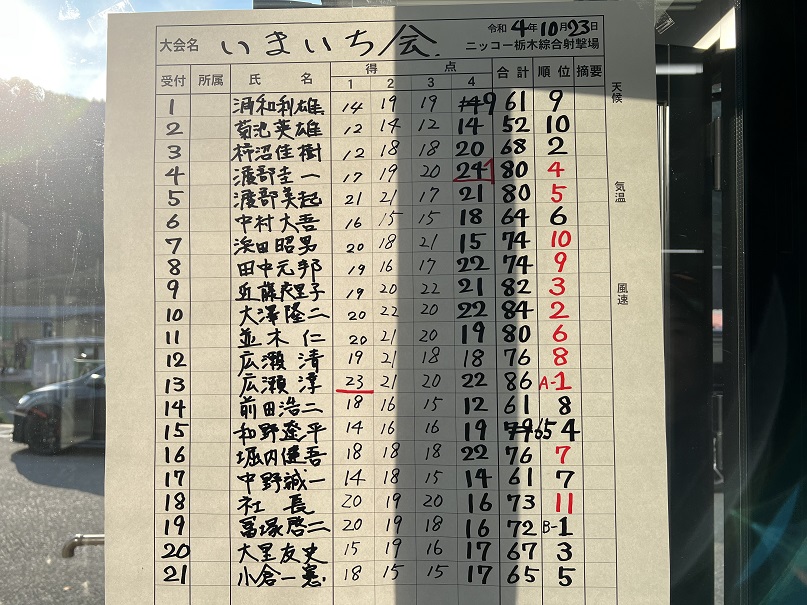 大会名 いまいち会. 令和4年10月23日
ニッコー栃木綜合射撃場
受付 所属 氏名 得点 合計 順位 摘要
1 2 3 4
1 浦和利雄 14 19 19 9 61 9
2 菊池英雄 12 14 12 14 52 10
3 柿沼佳樹 12 18 18 20 68 2
4 渡部圭一 17 19 20 24 80 4
5 渡部美起 21 21 17 21 80 5
6 中村大吾 16 15 15 18 64 6
7 浜田昭男 20 18 21 15 74 10
8 田中元邦 19 16 17 22 74 9
9 近藤良里子 19 20 22 21 82 3
10 大澤隆二 20 22 20 22 84 2
11 並木仁 20 21 20 19 80 6
12 広瀬清 19 21 18 18 76 8
13 広瀬淳 23 21 20 22 86 A-1
14 前田浩二 18 16 15 12 61 8
15 和野遼平 14 16 16 19 65 4
16 堀内健吾 18 18 18 22 76 7
17 中野誠一 14 18 15 14 61 7
18 社長 20 19 20 16 73 11
19 冨塚啓二 20 19 18 16 72 B-1
20 大里友史 15 19 16 17 67 3
21 小倉一憲 18 15 15 17 65 5
天候
気温
風速